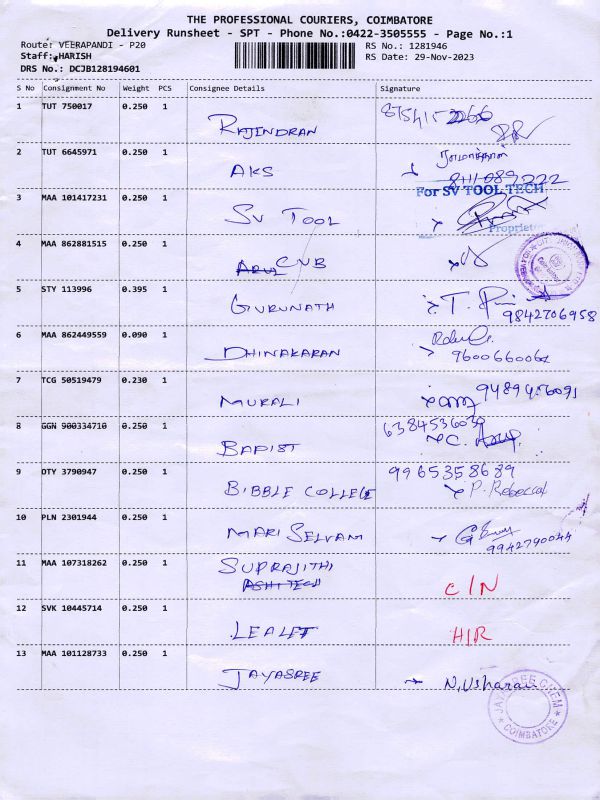 THE PROFESSIONAL COURIERS, COIMBATORE
Delivery Runsheet - SPT - Phone No.:0422-3505555 - Page No.:1
Route: VEERAPANDI - P20 RS No.: 1281946
Staff: HARISH RS Date: 29-Nov-2023
DRS No.: DCJB128194601
S No Consignment No Weight PCS Consignee Details Signature
1 TUT 750017 0.250 1 RAJENDRAN
2 TUT 6645971 0.250 1 AKS
For SV TOOL TECH
3 MAA 101417231 0.250 1 SV TOOL
Proprietor
4 MAA 862881515 0.250 1 CUB
5 STY 113996 0.395 1 GURUNATH
9842706958
6 MAA 862449559 0.090 1 DHINAKARAN
9600660061
7 TCG 50519479 0.230 1 MURALI 9489476091
8 GGN 900334710 0.250 1 BAPIST 6384536030
9 OTY 3790947 0.250 1 BIBBLE COLLEGE 9965358689
P. Rebeccal
10 PLN 2301944 0.250 1 MARI SELVAM
9942790044
11 MAA 107318262 0.250 1 SUPRAJITHI
ASHITECH C/N
12 SVK 10445714 0.250 1 LEALET H/R
13 MAA 101128733 0.250 1 JAYASREE N. Usharani
JAYASREE CHEM
COIMBATORE